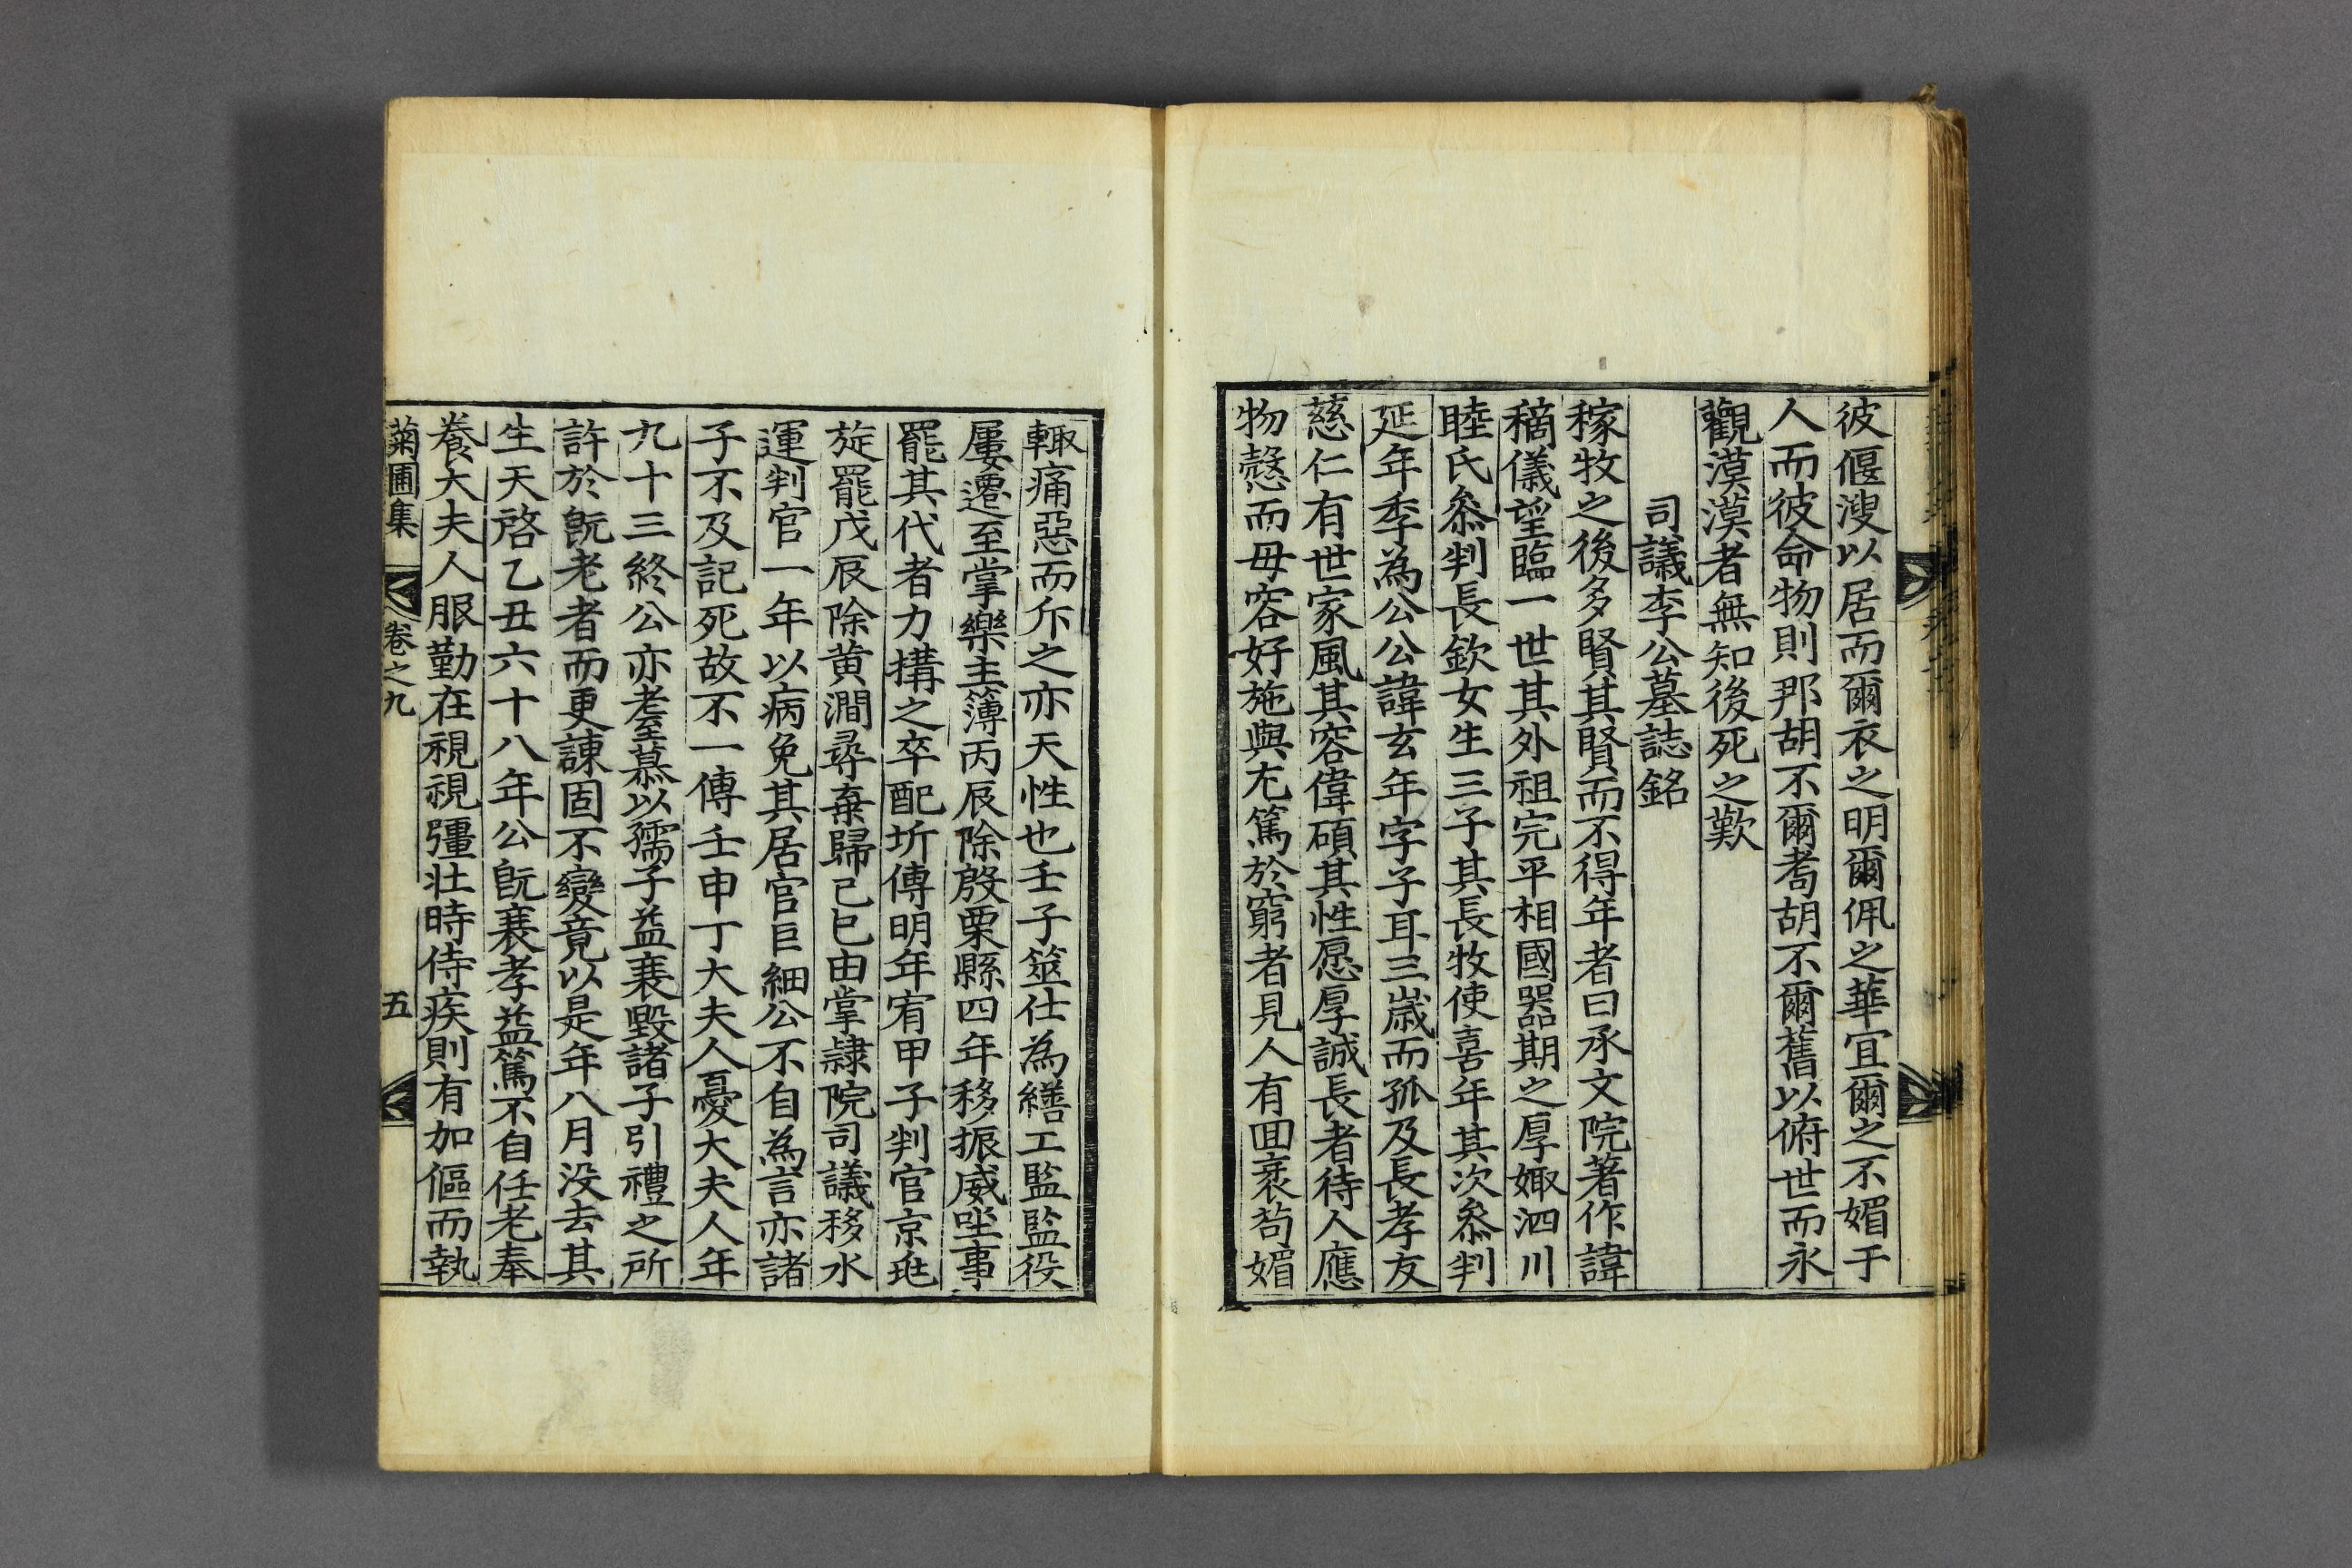 彼偃溲以居而爾衣之明爾佩之華宜爾之不媚于
人而彼命物則那胡不爾耇胡不爾舊以俯世而永
觀漠漠者無知後死之歎
司議李公墓誌銘
稼牧之後多賢其賢而不得年者曰承文院著作諱
穧儀望臨一世其外祖完平相國器期之厚娵泗川
睦氏叅判長欽女生三子其長牧使喜年其次叅判
延年季為公公諱玄年字子耳三歲而孤及長孝友
慈仁有世家風其容偉碩其性愿厚誠長者待人應
物慤而毋容好施與尤篤於窮者見人有回衺苟媚
輙痛惡而斥之亦天性也壬子筮仕為繕工監監役
屢遷至掌樂主簿丙辰除殷栗縣四年移振威坐事
罷其代者力搆之卒配圻傳明年宥甲子判官京兆
旋罷戊辰除黄澗尋棄歸己巳由掌隷院司議移水
運判官一年以病免其居官巨細公不自為言亦諸
子不及記死故不一傳壬申丁大夫人憂大夫人年
九十三終公亦耋慕以孺子益衰毀諸子引禮之所
許於旣老者而更諫固不變竟以是年八月没去其
生天啓乙丑六十八年公旣衰孝益篤不自任老奉
養大夫人服勤在視視彊壯時侍疾則有加傴而執
菊圃集 卷之九 五